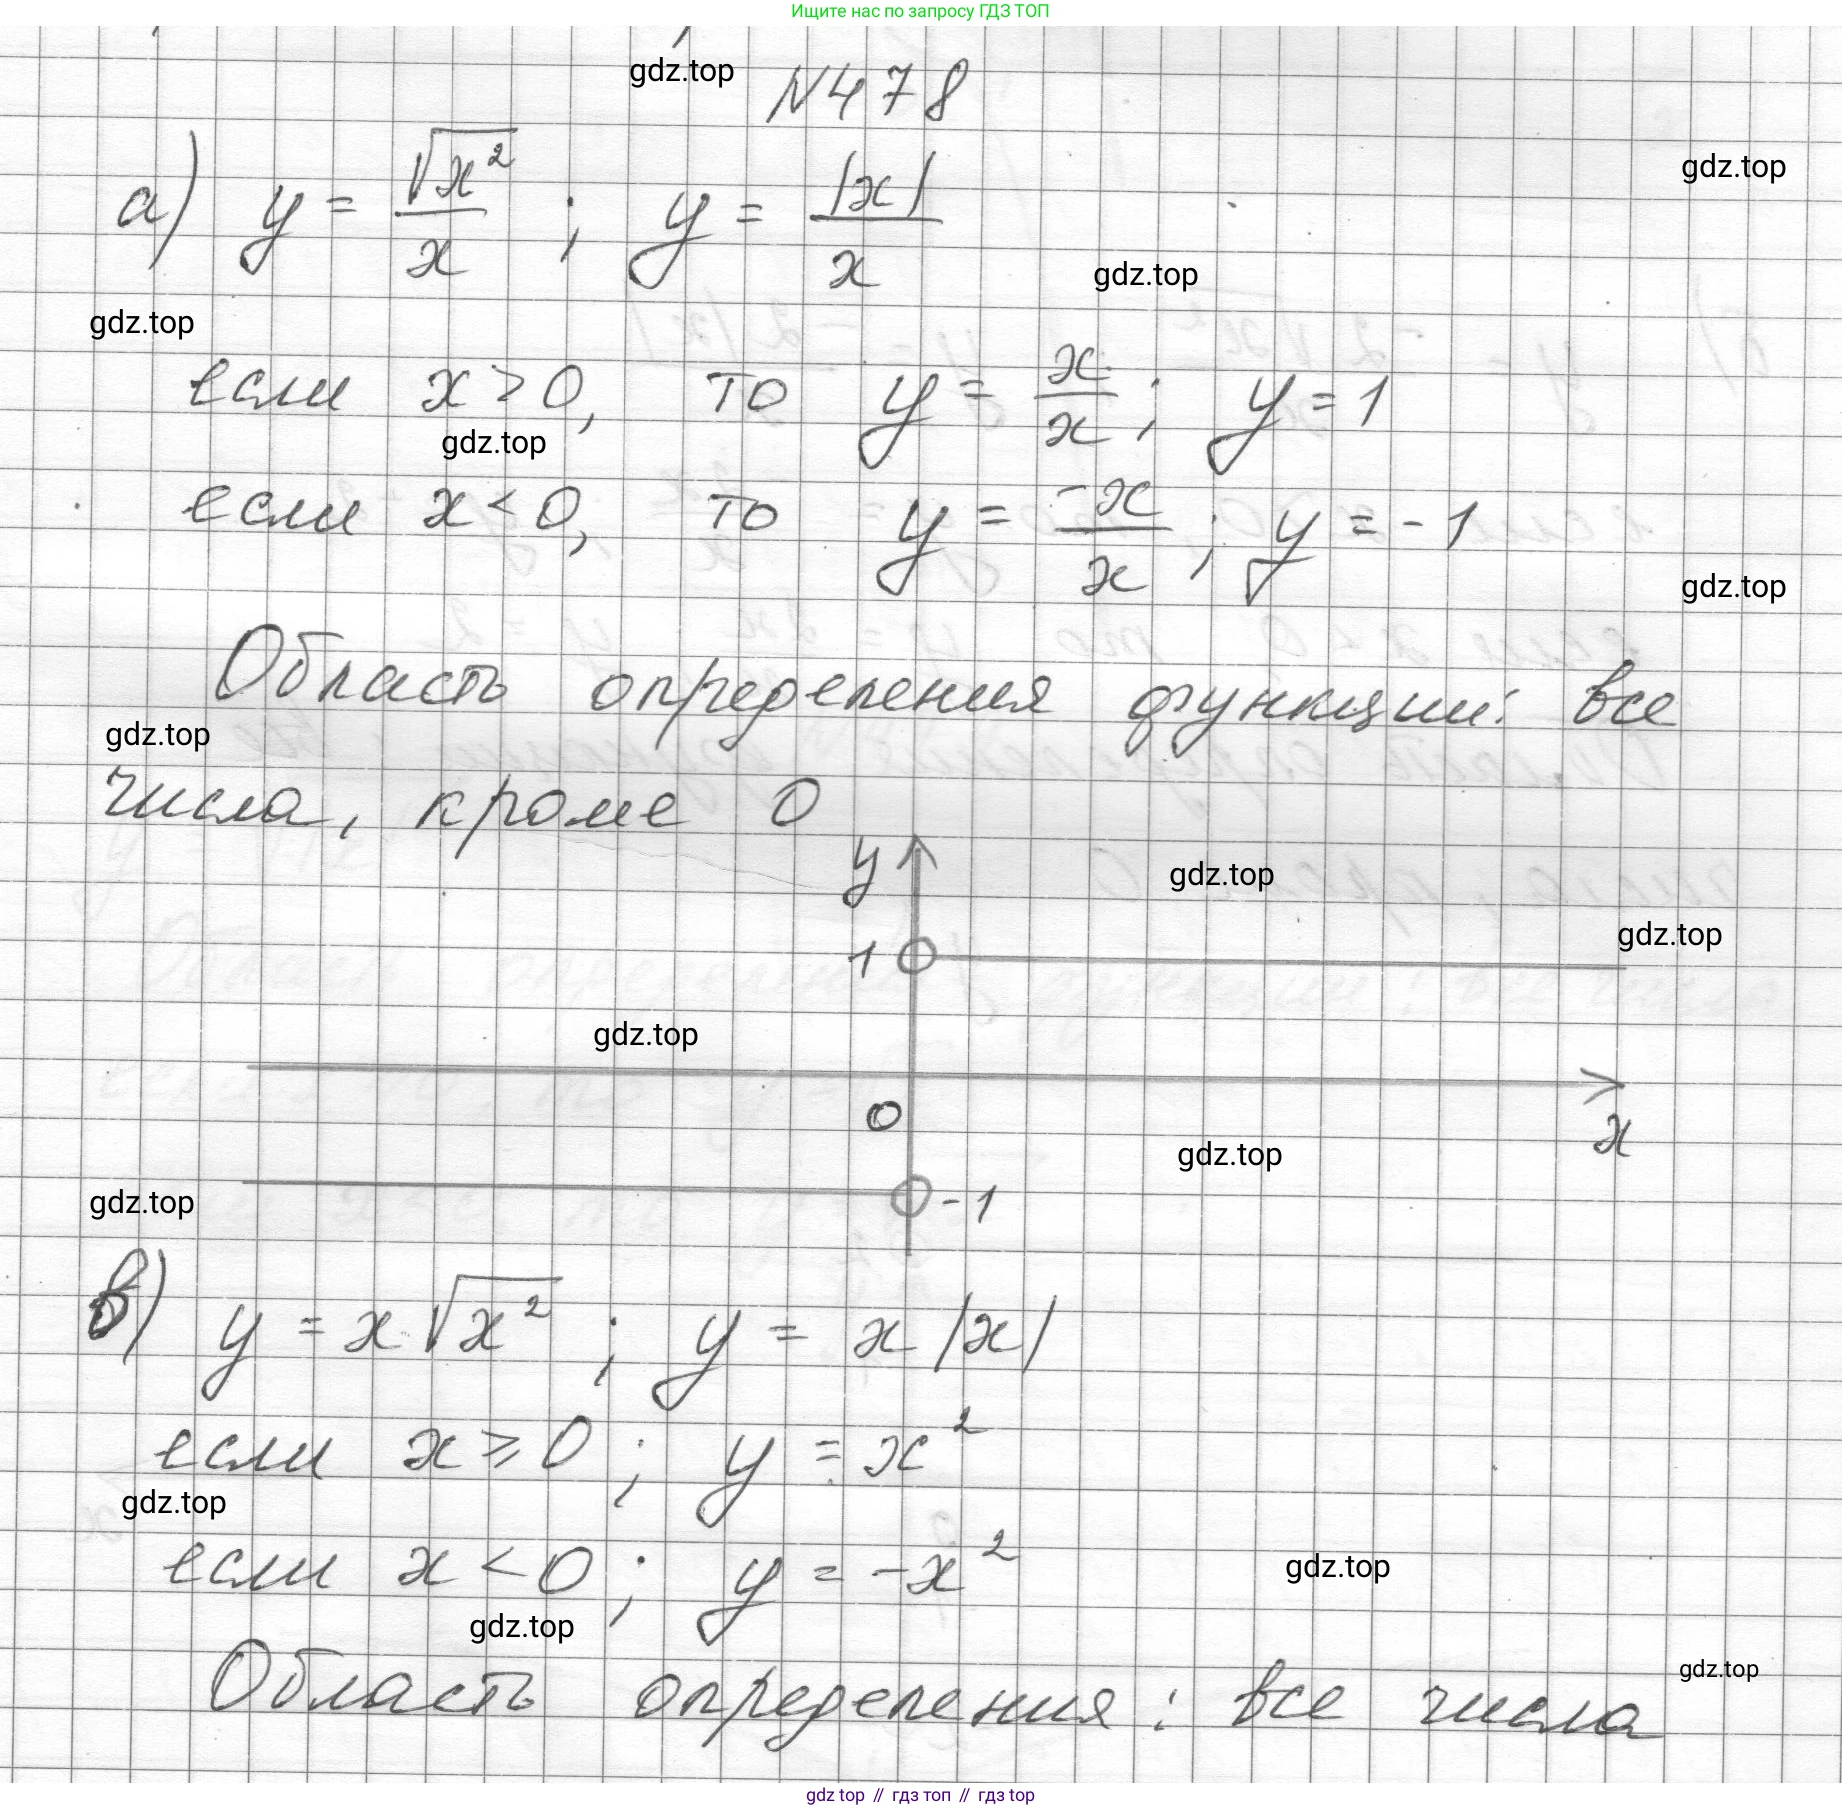 Ищите нас по запросу ГДЗ ТОП
gdz.top
N478
gdz.top
а) y = √x² / x ; y = |x| / x
gdz.top
gdz.top
если x > 0, то y = x/x ; y = 1
gdz.top
если x < 0, то y = -x/x ; y = -1
gdz.top
Область определения функции: все
gdz.top
числа, кроме 0
y
gdz.top
gdz.top
1
gdz.top
0
x
gdz.top
gdz.top
-1
в) y = x √x² ; y = x |x|
если x ≥ 0 ; y = x²
gdz.top
если x < 0 ; y = -x²
gdz.top
gdz.top
gdz.top
Область определения : все числа
gdz top // гдз топ // гдз top